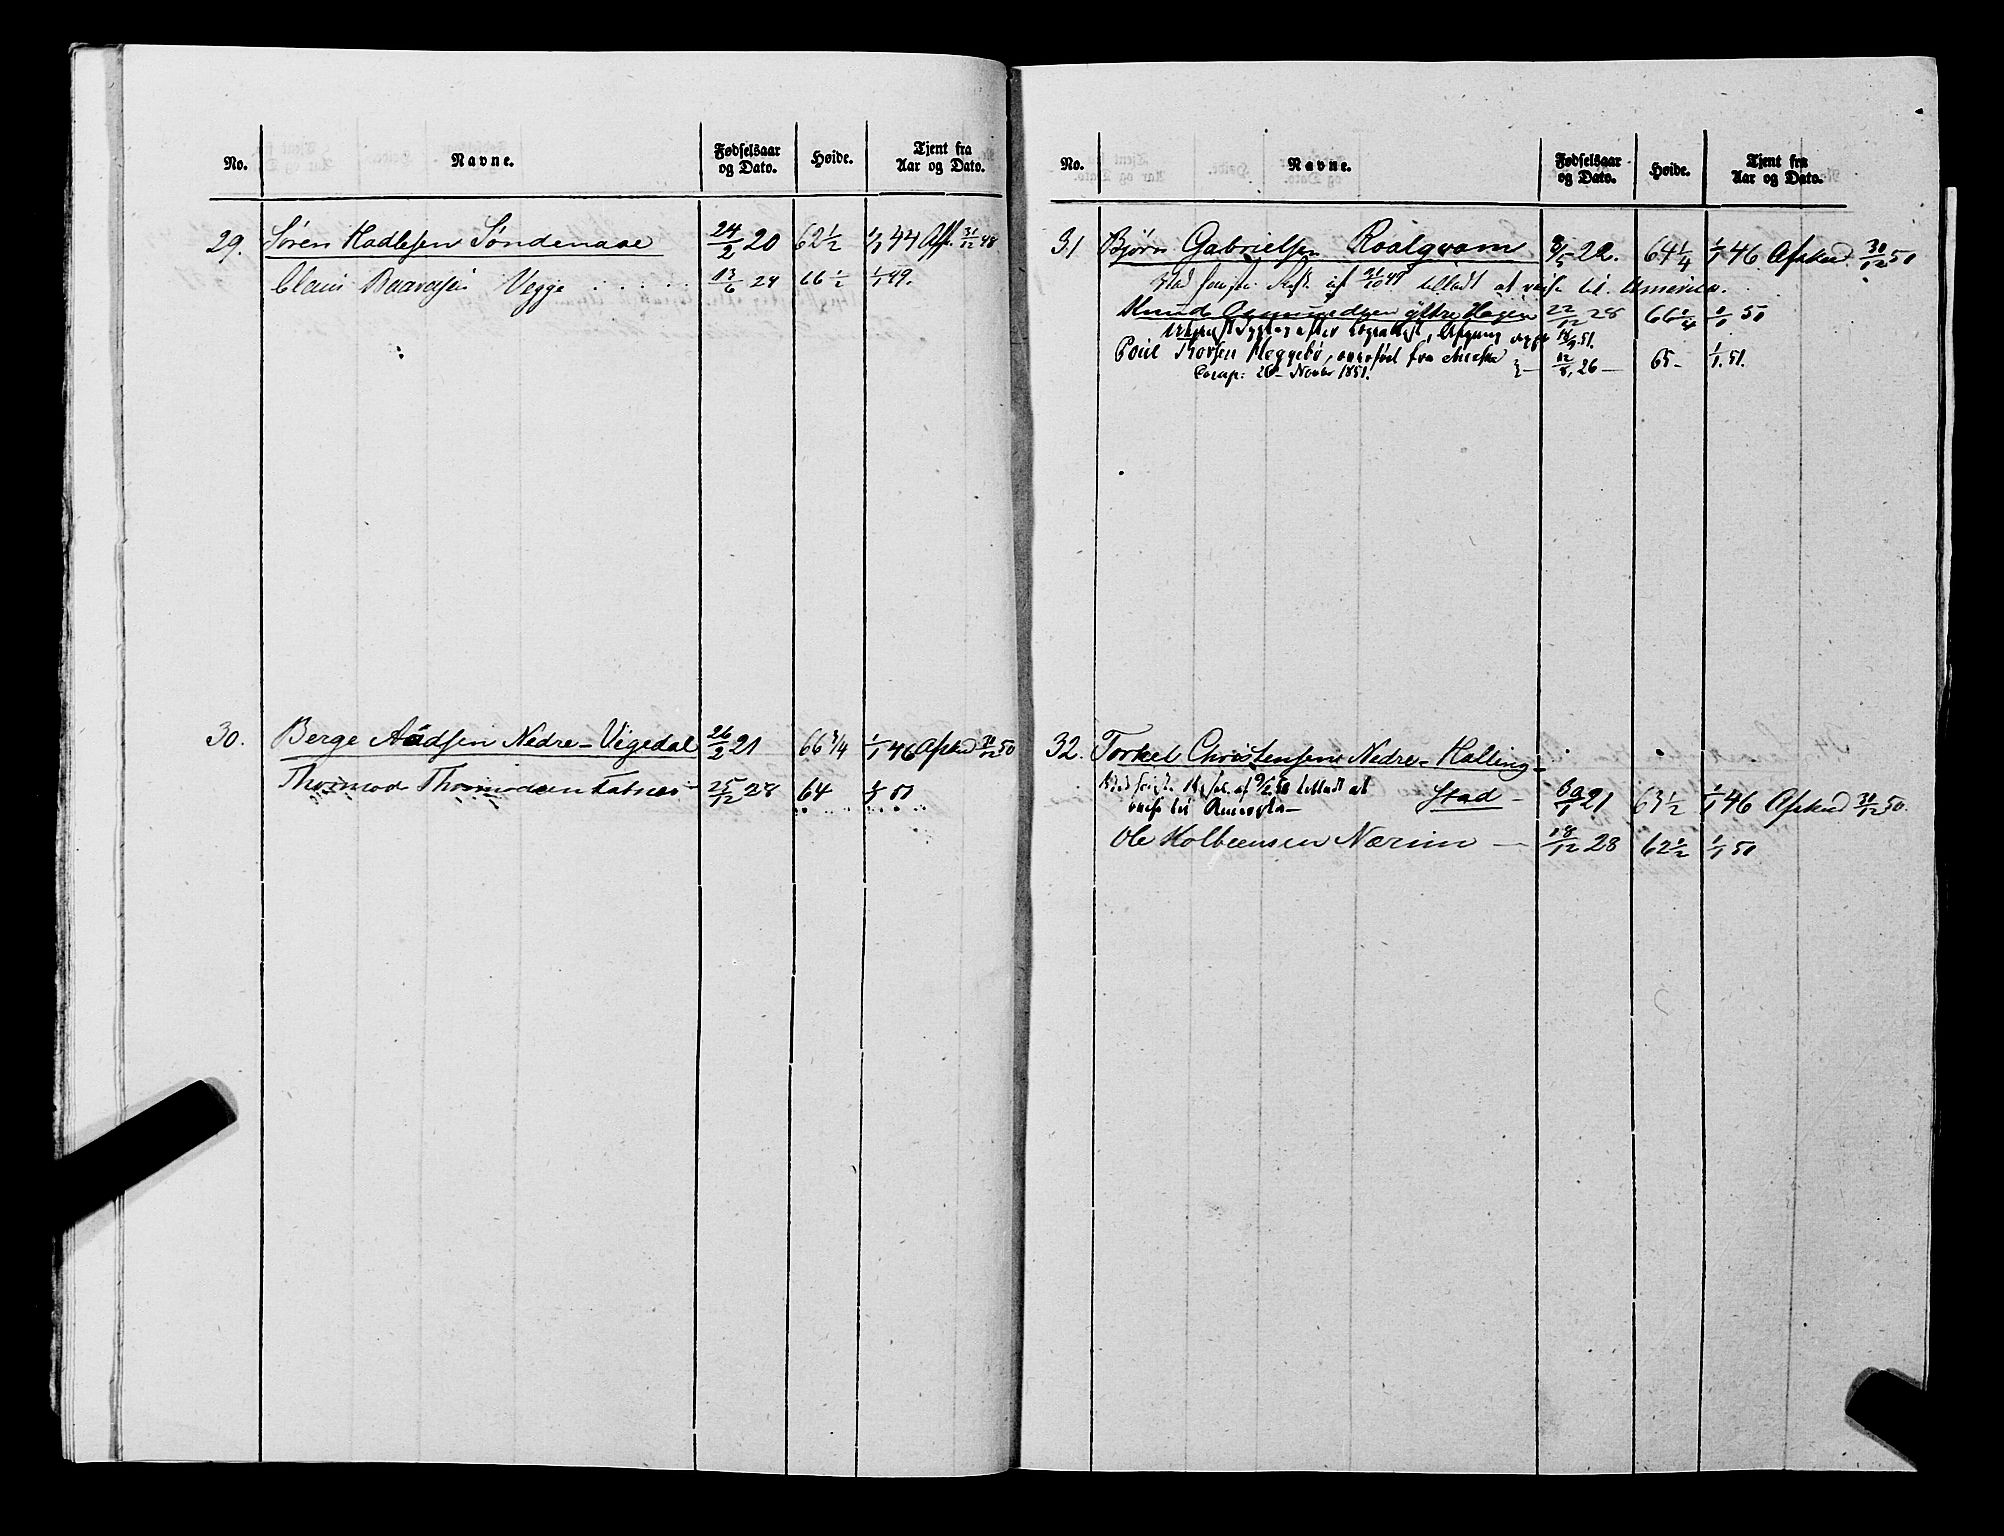 No. Navne. Fødselsaar og Dato. Høide. Tjent fra Aar og Dato.
29. Søren Hadlesen Søndenaae 24/2 20 62 1/2 1/1 44 Aff. 31/12 48
Claus Baardsen Vegge 13/6 24 66 1/2 1/1 49.
30. Berge Aadsen Nedre-Vigedal 26/2 21 66 3/4 1/1 46 Afskd 30/12 50
Thormod Thormodsen 25/12 28 64 1/1 51
No. Navne. Fødselsaar og Dato. Høide. Tjent fra Aar og Dato.
31 Bjørn Gabrielsen Roalqvam 8/5 22. 64 1/4 1/1 46 Afskd. 30/12 50
Ved af 21/10 49 tilladt at reise til America.
Knud Aamundsen ÿttre Hagen 22/12 28 66 1/4 1/1 50
efter Afgang 51.
Poul Thorsen Heggebø, overført fra 12/8, 26 65 1/1. 51.
Comp: 26 Novbr 1851.
32. Torkel Christensen Nedre-Halling-
Ved af 9/2 50 tilladt at Stad 21 63 1/2 1/1 46 Afskd 30/12 50.
reise til America
Ole Holbeensen Nærim 18/12 28 62 1/2 1/1 50